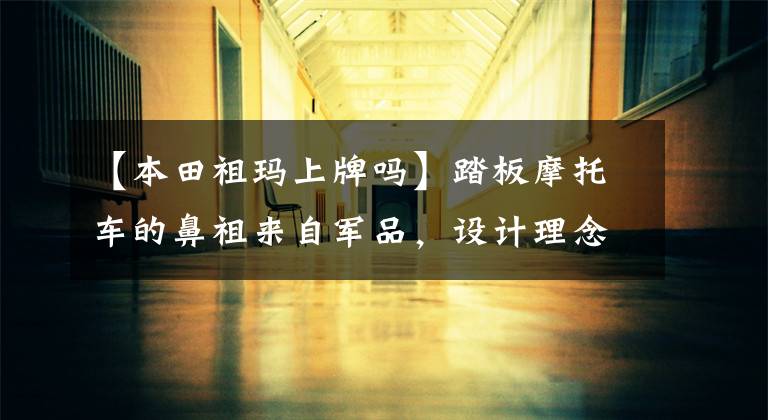 【本田祖玛上牌吗】踏板摩托
车的鼻祖来自军品，设计理念